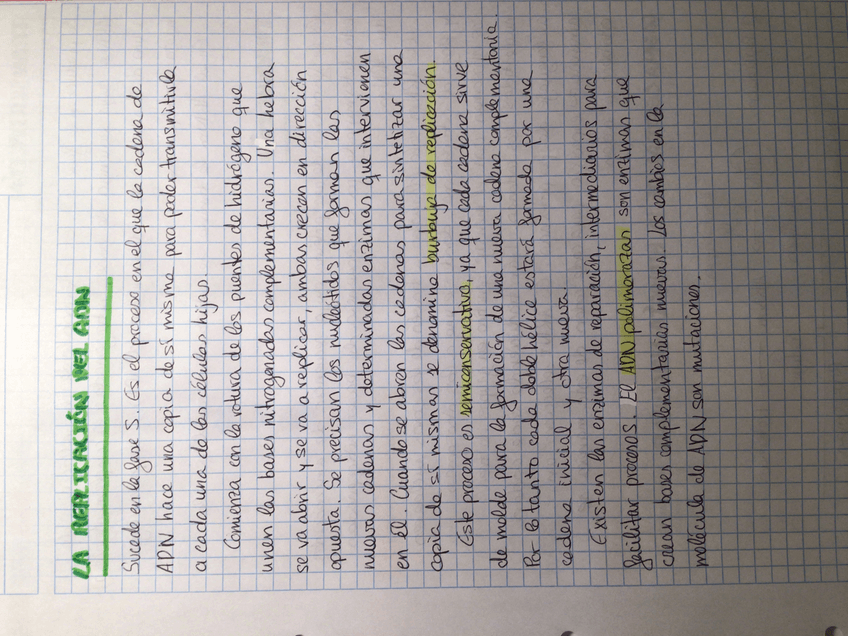 LA REPLICACIÓN DEL ADN
Sucede en la fase S. Es el proceso en el que la cadena de
ADN hace una copia de sí misma para poder transmitirla
a cada una de las células hijas.
Comienza con la rotura de los puentes de hidrógeno que
unen las bases nitrogenadas complementarias. Una hebra
se va abrir y se va a replicar, ambas crecen en dirección
opuesta. Se precisan los nucleótidos que forman las
nuevas cadenas y determinadas enzimas que intervienen
en él. Cuando se abren las cadenas para sintetizar una
copia de sí mismas se denomina burbuja de replicación.
Este proceso es semiconservativo, ya que cada cadena sirve
de molde para la formación de una nueva cadena complementaria.
Por lo tanto cada doble hélice estará formada por una
cadena inicial y otra nueva.
Existen las enzimas de reparación, intermediarios para
facilitar procesos. El ADN polimerazas son enzimas que
crean bases complementarias nuevas. Los cambios en la
molécula de ADN son mutaciones.